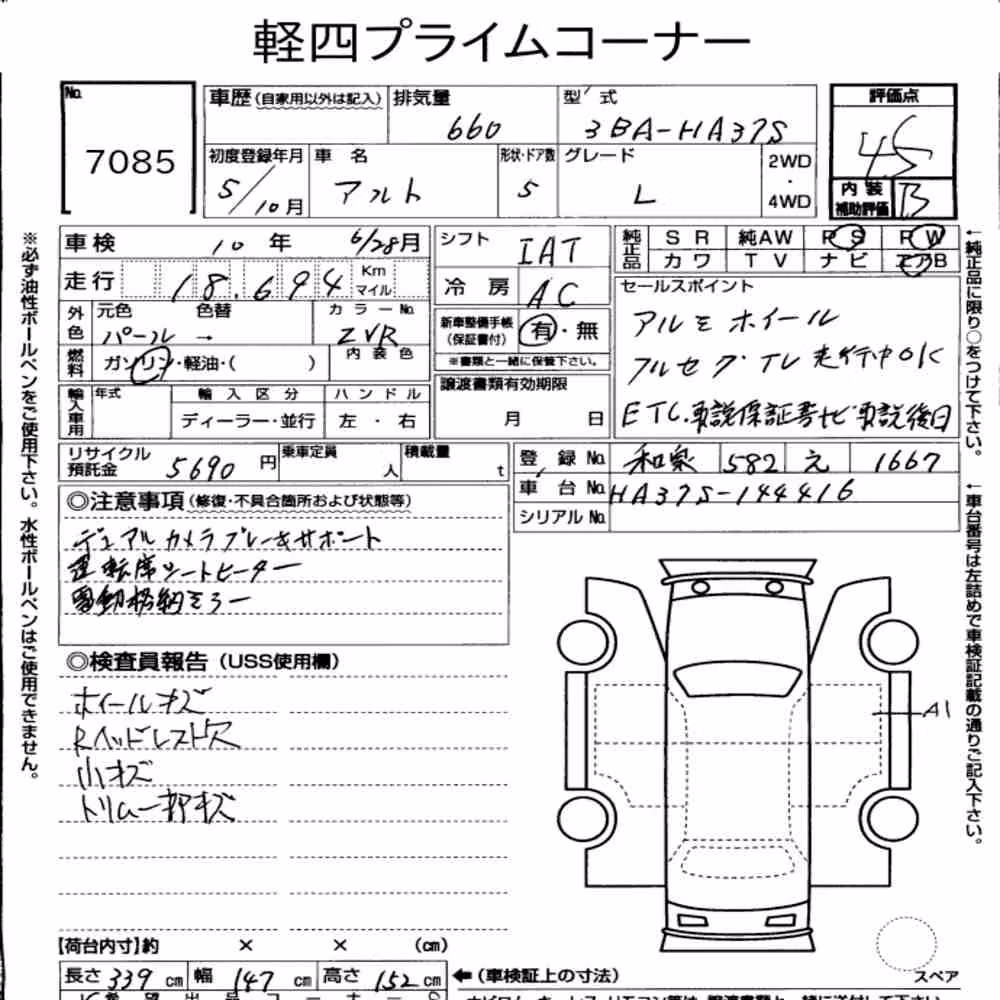 軽四プライムコーナー
No. 7085
車歴(自家用以外は記入)
排気量 660
型式 3BA-HA37S
評価点 4.5
初度登録年月 5/10月
車名 アルト
形状・ドア数 5
グレード L
2WD・4WD
内装補助評価 B
車検 10年 6/28月
シフト IAT
純正品 SR 純AW PS PW
カワ TV ナビ エアB
走行 18,694 Km マイル
冷房 AC
セールスポイント
アルミホイール
フルセグTV走行中OK
ETC.取説保証書ナビ取説後日
外色 元色 パール 色替 →
カラーNo. ZVR
新車整備手帳(保証書付) 有・無
※書類と一緒に保管下さい。
燃料 ガソリン・軽油・( )
内装色
譲渡書類有効期限
月 日
輸入車用 年式 輸入区分 ハンドル
ディーラー・並行 左・右
リサイクル預託金 5690円
乗車定員 人
積載量 t
登録No. 和泉 582 え 1667
車台No. HA37S-144416
シリアルNo.
◎注意事項(修復・不具合箇所および状態等)
デュアルカメラブレーキサポート
運転席シートヒーター
電動格納ミラー
◎検査員報告(USS使用欄)
ホイールキズ
Rヘッドレスト欠
小キズ
トリム一部キズ
A1
【荷台内寸】約 × × (cm)
長さ 339 cm 幅 147 cm 高さ 152 cm
←(車検証上の寸法)
スペア
※必ず油性ボールペンをご使用下さい。水性ボールペンはご使用できません。
←純正品に限り○をつけて下さい。
←車台番号は左詰めで車検証記載の通りご記入下さい。